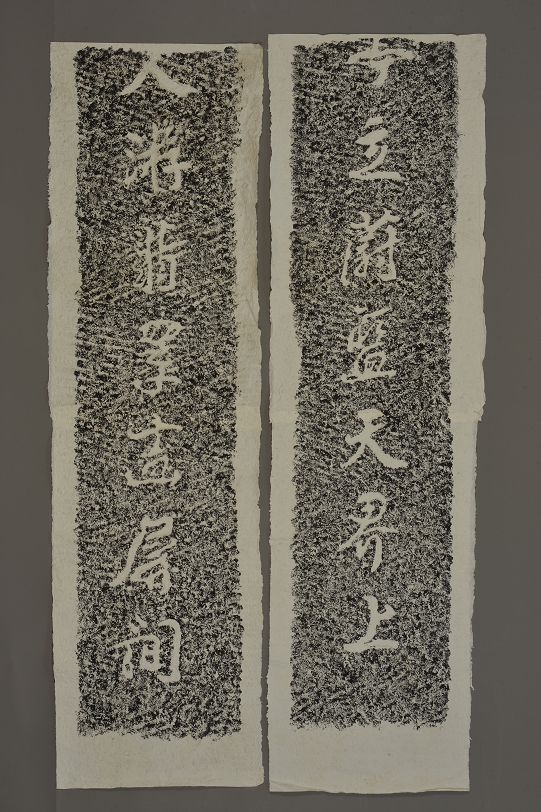 亭立蔚藍天界上
人游翡翠畫屏間